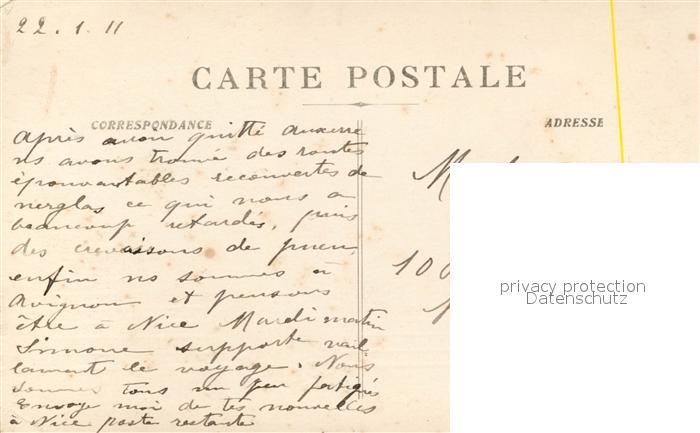 22.1.11
CARTE POSTALE
CORRESPONDANCE
ADRESSE
Après avoir quitté Auxerre
ns avons trouvé des routes
épouvantables recouvertes de
verglas ce qui nous a
beaucoup retardés, puis
des crevaisons de pneu,
enfin ns sommes à
Avignon et pensons
être à Nice Mardi matin
Simone supporte vail-
lament le voyage. Nous
sommes tous un peu fatigués
Envoye moi de tes nouvelles
à Nice poste restante
100
privacy protection
Datenschutz